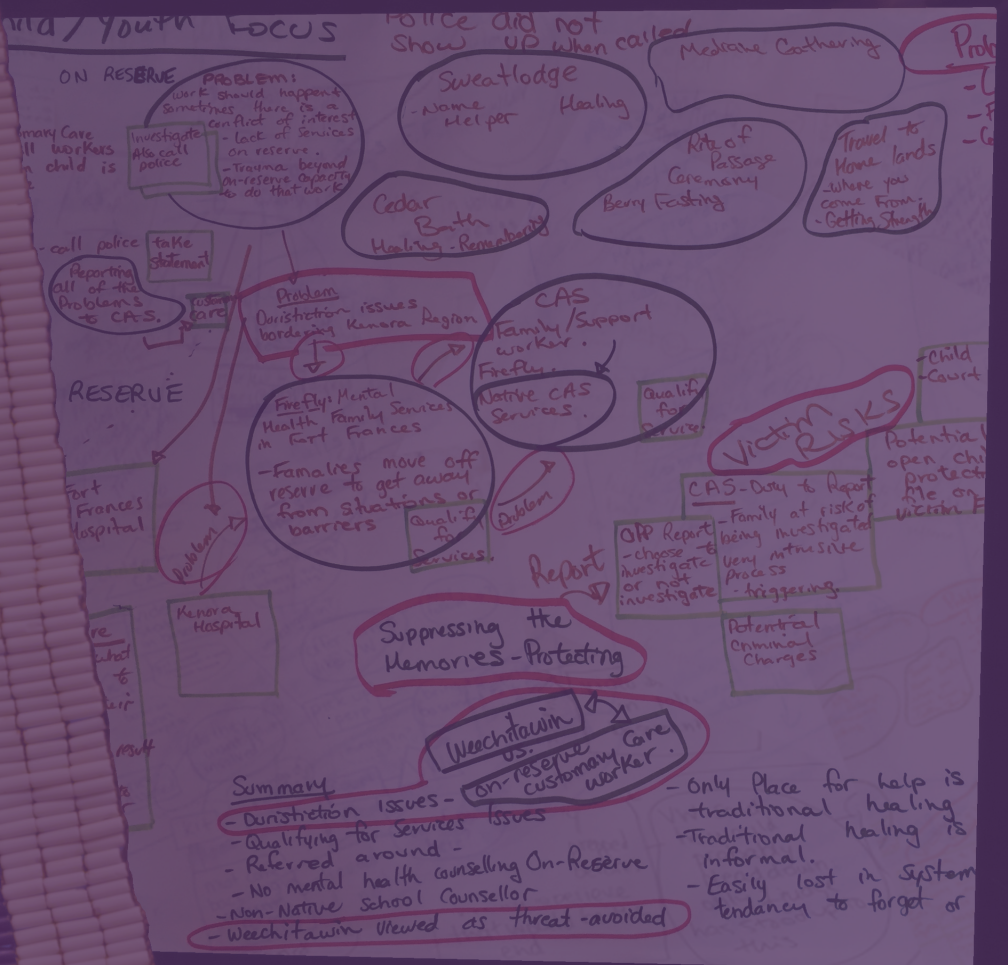 /Youth FOCUS
Police did not
show up when called
ON RESERVE
PROBLEM:
work should happen
sometimes there is a
conflict of interest
- lack of services
on reserve.
- Trauma beyond
on-reserve capacity
to do that work
Investigate
Also call
police
mary Care
workers
child is
Sweatlodge
- Name Healing
Helper
Medicine Gathering
Prob
Cedar
Bath
Healing - 
Rite of
Passage
Ceremony
Berry Fasting
Travel to
Home lands
- Where you
come From.
- Getting Strength
- call police
take
statement
Reporting
all of the
Problems
to CAS.
care
Problem
Duristiction issues
bordering Kenora Region
CAS
Family/Support
worker.
Firefly.
Native CAS
Services.
Qualify
for
Service.
RESERVE
Firefly: Mental
Health Family Services
in Fort Frances
- Familes move off
reserve to get away
from situations or
barriers
Qualify
for
Services.
Problem
Problem
Fort
Frances
Hospital
Kenora
Hospital
Victim
RISKS
- Child
- Court
Potential
open chi
protect
file on
victim F
CAS - Duty to Report
- Family at risk of
being investigated
very intrusive
process
- triggering.
OPP Report
- choose to
investigate
or not
investigate
Report
Potential
Criminal
Charges
Suppressing the
Memories - Protecting
what
to
result
Weechitawin
vs.
on-reserve
customary Care
worker
Summary
- Duristiction Issues -
- Qualifying for Services Issues
- Referred around -
- No mental health counselling On-Reserve
- Non-Native School Counsellor
- Weechitawin viewed as threat - avoided
- Only Place for help is
traditional healing
- Traditional healing is
informal.
- Easily lost in System
tendancy to forget or